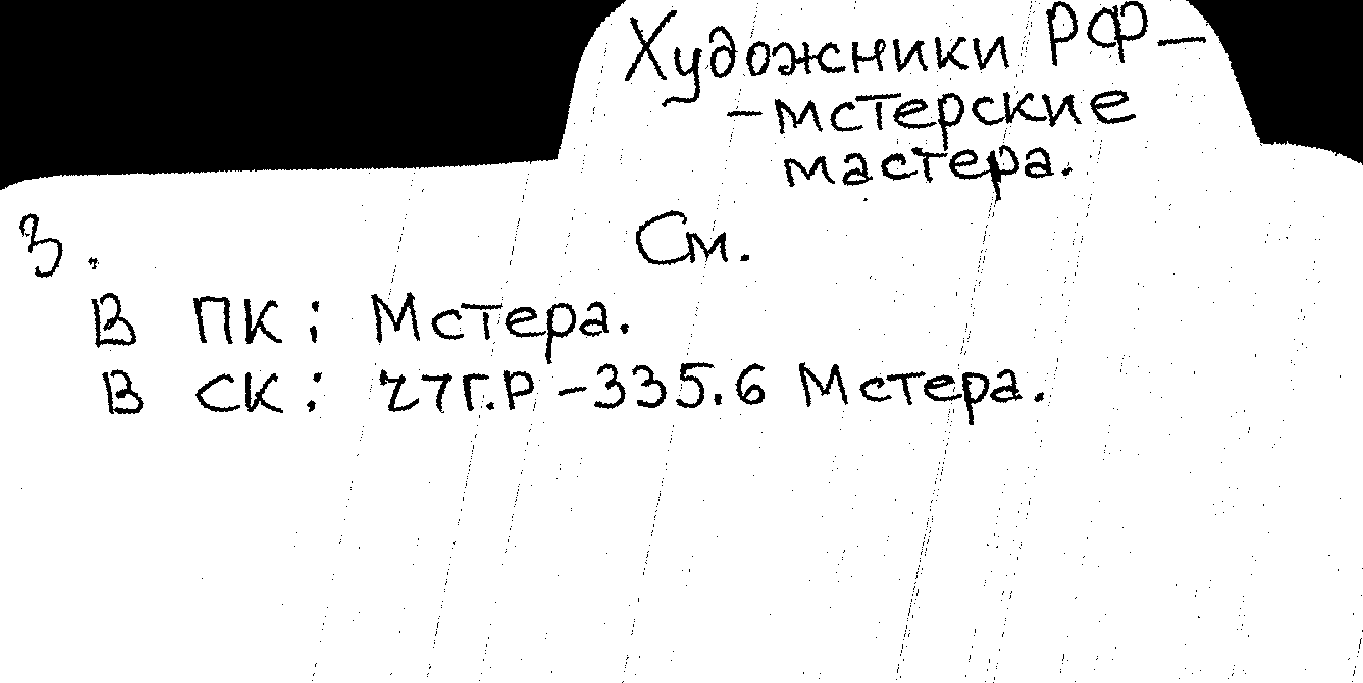 Художники РФ –
– мстерские
мастера.
3. См.
В ПК: Мстера.
В СК: 27Г.Р – 335.6 Мстера.